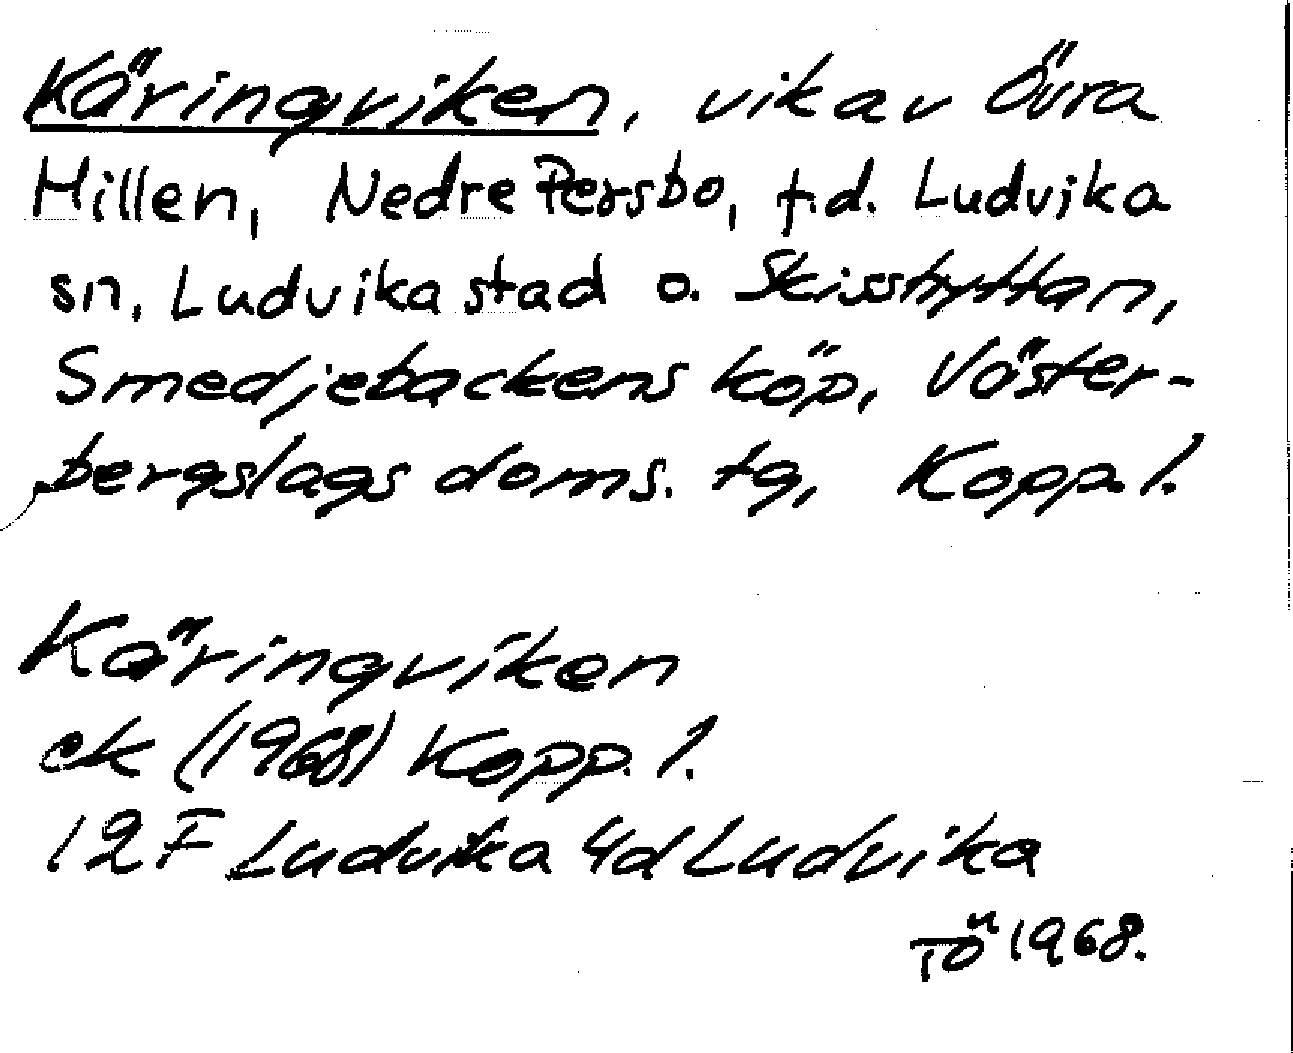 Käringviken, vik av Övra
Hillen, Nedre Persbo, f.d. Ludvika
sn, Ludvika stad o. Skisshyttan,
Smedjebackens köp, Väster-
bergslags doms. tg, Kopp. l.
Käringviken
ek (1968) Kopp. l.
12 F Ludvika 4d Ludvika
TÖ 1968.